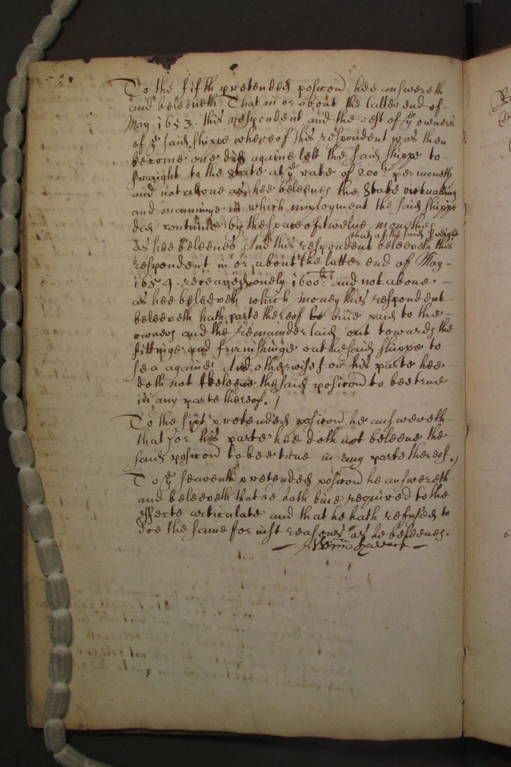 To the fifth pretended posicon hee answereth
and beleeveth That in or about the latter end of
May 1653 this respondent and the rest of ye owners
of ye said shippe whereof this respondent was then
become one did againe lett the said shippe to
fraight to the State at ye rate of 200li per moneth
and not above as hee beleeves the State victualling
and manninge it which imployment the said shippe
did continue by the space of twelve monethes
as hee beleeves And this respondent beleeveth this
respondent in or about the latter end of May
1654 received onely 1600li and not above
as hee beleeveth which money this respondent
beleeveth hath parte thereof to bine paid to the
owners and the remainder laid out towards the
fittinge and furnishinge out the said shippe to
sea againe And otherwise for his parte hee
doth not beleeve the said posicon to bee true
in any parte thereof /
To the sixt pretended posicon he answereth
that for his parte hee doth not beleeve the
said posicon to bee true in any parte thereof /
To ye seaventh pretended posicon he answereth
and beleeveth that he hath bine required to the
effecte articulate and that he hath refused to
doe the same for iust reasones as he beleeves.